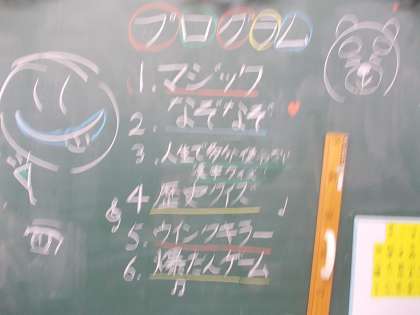 プログラム
1. マジック
2. なぞなぞ
3. 人生で多分使わない
漢字クイズ
4 歴史クイズ
5. ウインクキラー
6. 爆だんゲーム